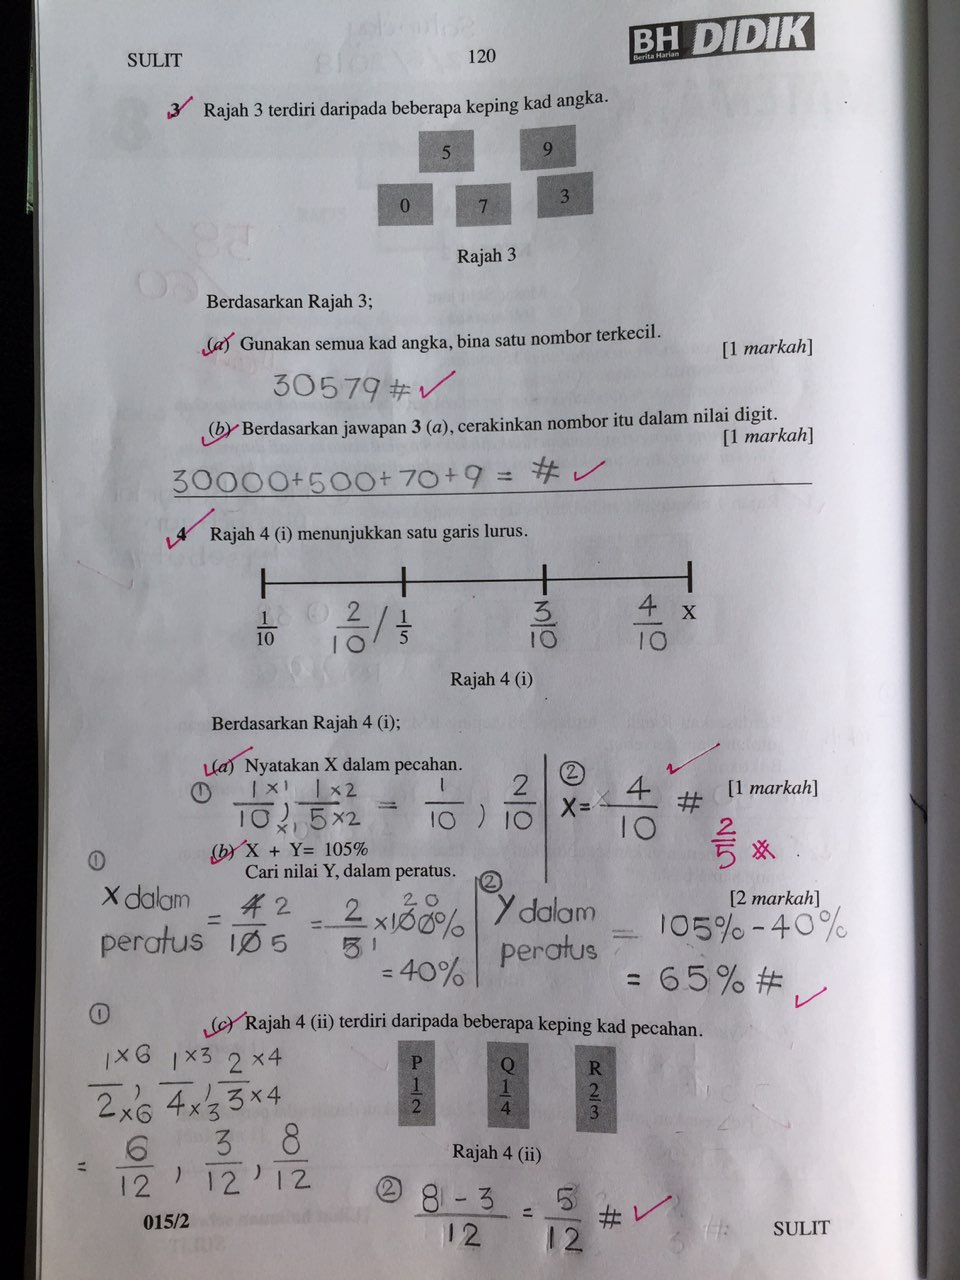 SULIT
120
BH DIDIK
Berita Harian
3 Rajah 3 terdiri daripada beberapa keping kad angka.
5 9
0 7 3
Rajah 3
Berdasarkan Rajah 3;
(a) Gunakan semua kad angka, bina satu nombor terkecil.
[1 markah]
30579 #
(b) Berdasarkan jawapan 3 (a), cerakinkan nombor itu dalam nilai digit.
[1 markah]
30000+500+70+9 = #
4 Rajah 4 (i) menunjukkan satu garis lurus.
1/10 2/10 / 1/5 3/10 4/10 X
Rajah 4 (i)
Berdasarkan Rajah 4 (i);
(a) Nyatakan X dalam pecahan.
[1 markah]
① 1×1/10×1 , 1×2/5×2 = 1/10 , 2/10
② X= 4/10 #
2/5 #
(b) X + Y= 105%
Cari nilai Y, dalam peratus.
[2 markah]
① X dalam peratus = 4 2/10 5 = 2/5 1 ×100% 20
= 40%
② Y dalam peratus = 105% - 40%
= 65% #
(c) Rajah 4 (ii) terdiri daripada beberapa keping kad pecahan.
P 1/2 Q 1/4 R 2/3
Rajah 4 (ii)
① 1×6/2×6 , 1×3/4×3 , 2×4/3×4
= 6/12 , 3/12 , 8/12
② 8 - 3/12 = 5/12 #
015/2
SULIT